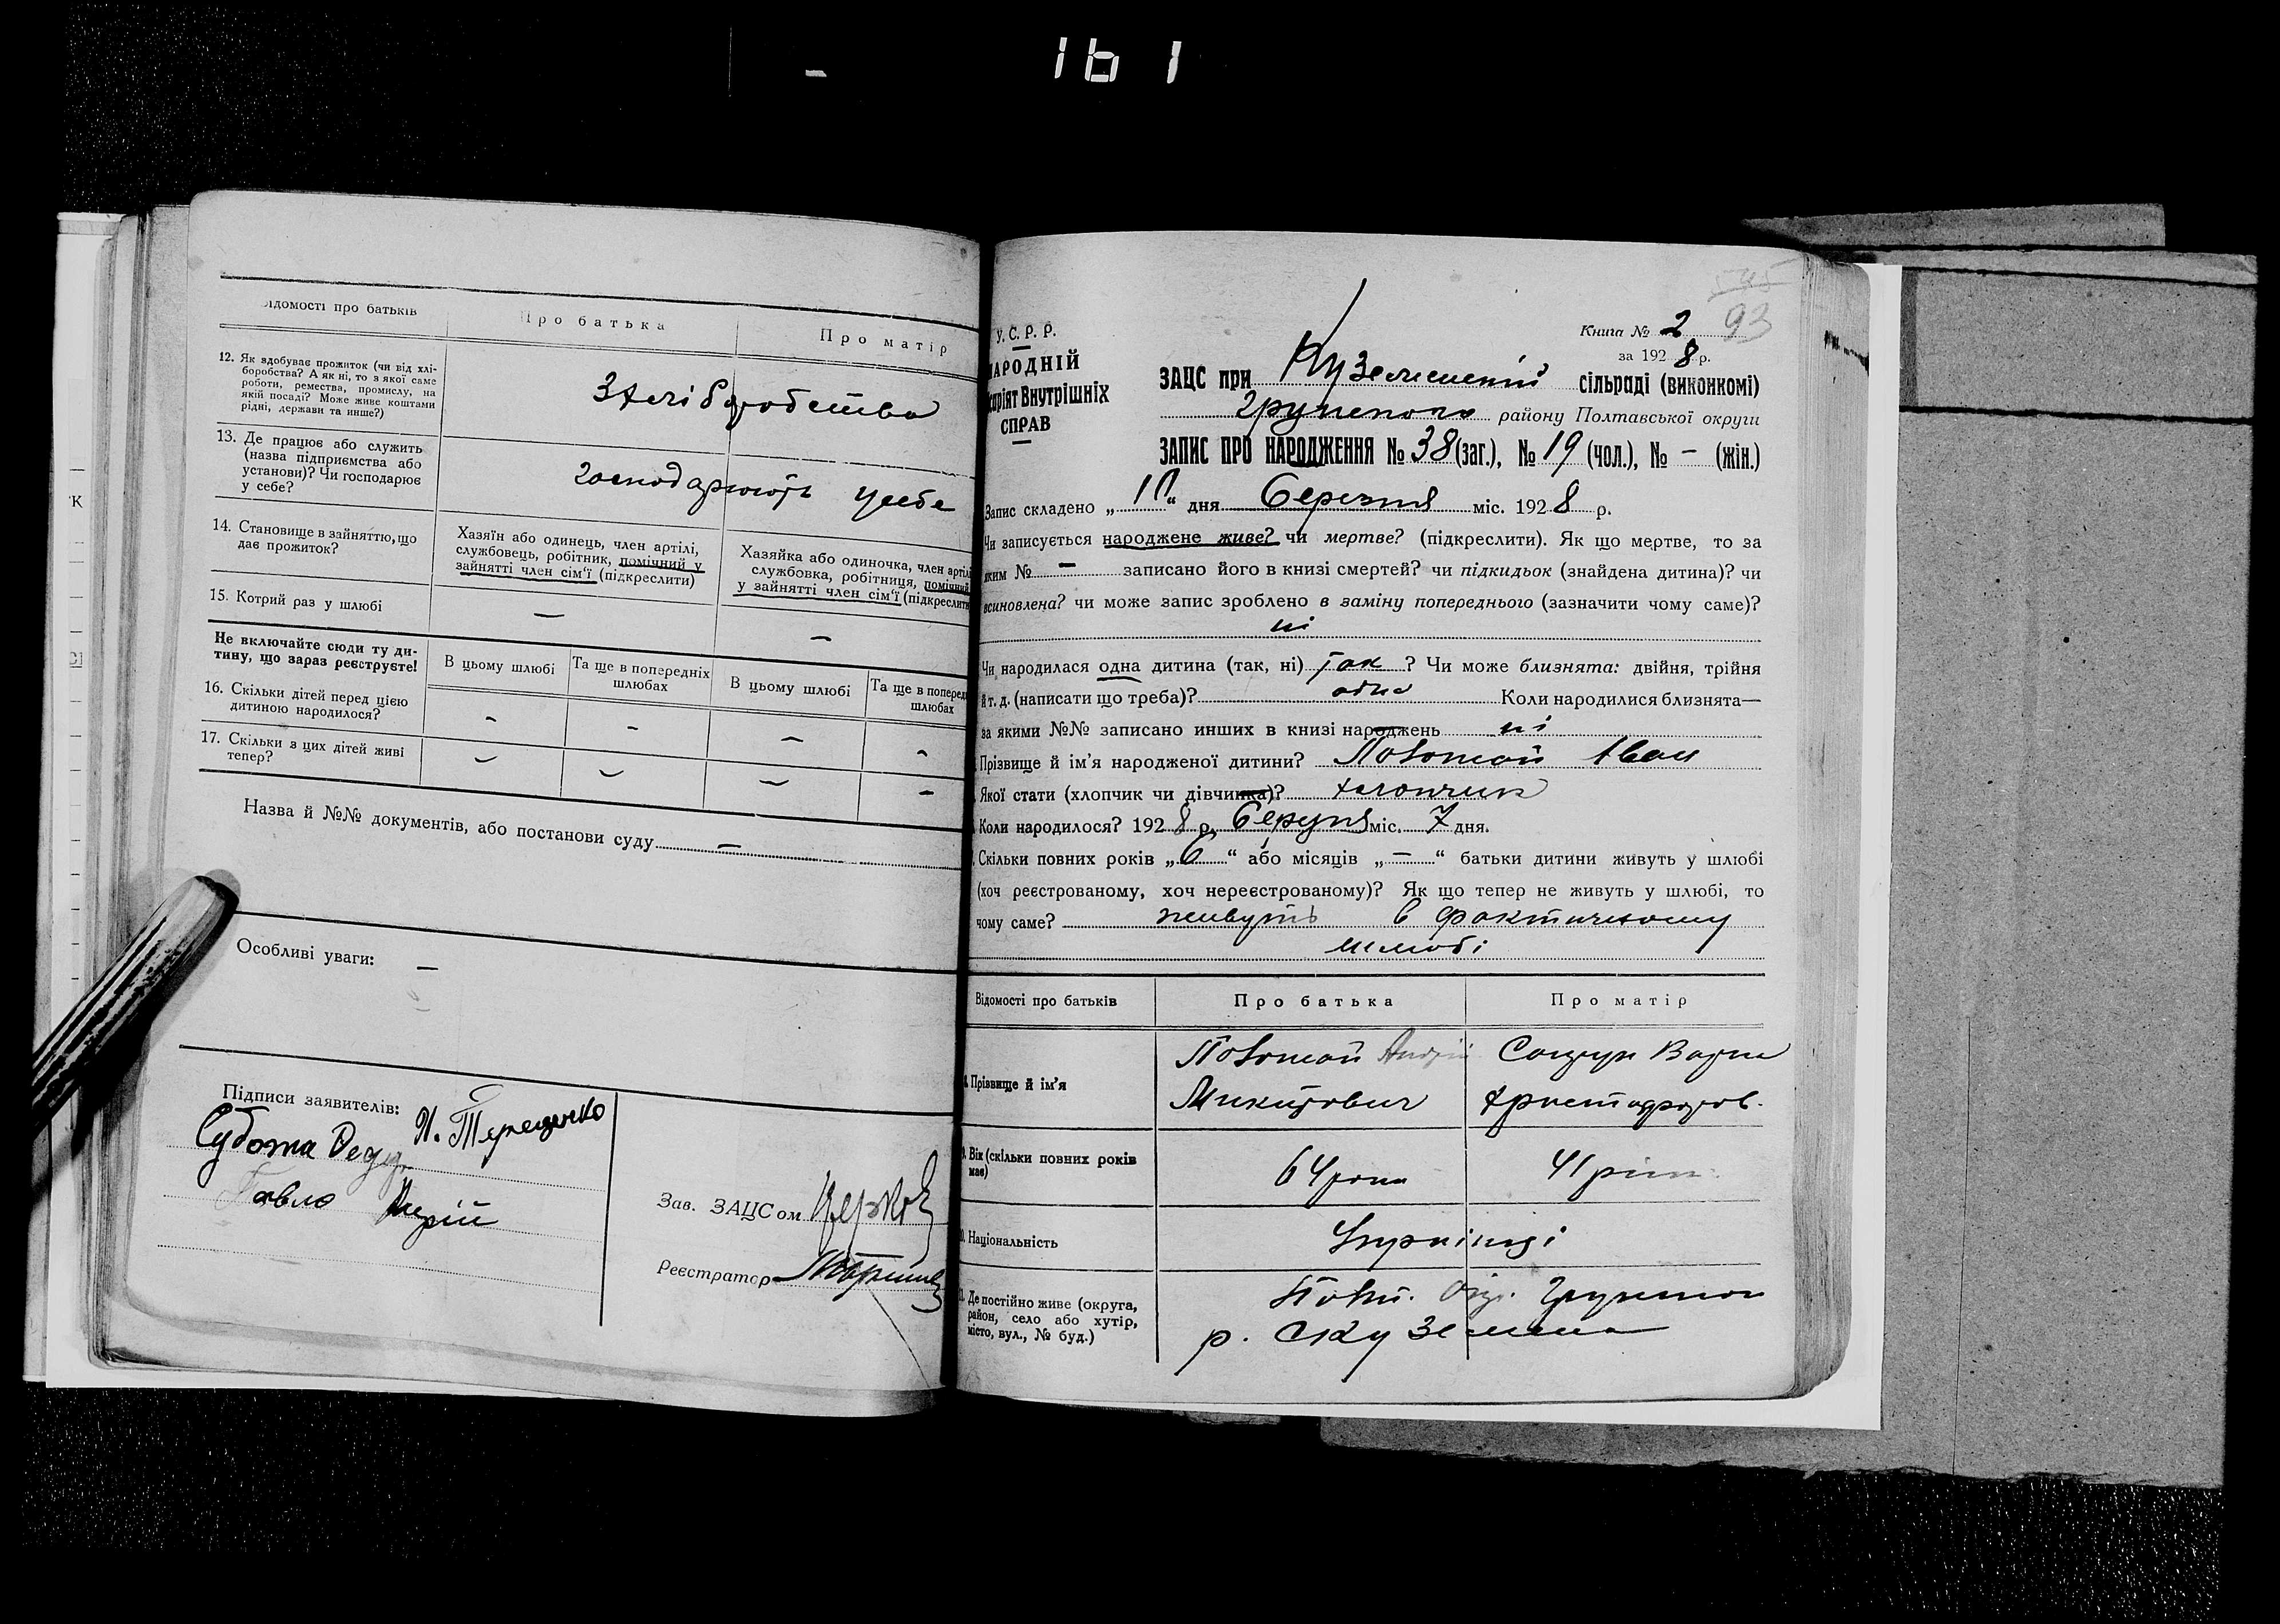 1б1
ідомості про батьків
Про батька
Про матір
12. Як здобуває прожиток (чи від хлі-
боробства? А як ні, то з якої саме
роботи, ремества, промислу, на
якій посаді? Може живе коштами
рідні, держави та инше?)
З хліборобства
13. Де працює або служить
(назва підприємства або
установи)? Чи господарює
у себе?
господарюють у себе
14. Становище в зайняттю, що
дає прожиток?
Хазяїн або одинець, член артілі,
службовець, робітник, помічний у
зайнятті член сім'ї (підкреслити)
Хазяйка або одиночка, член артілі
службовка, робітниця, помічний
у зайнятті член сім'ї (підкреслити
15. Котрий раз у шлюбі
—
—
Не включайте сюди ту ди-
тину, що зараз реєструєте!
В цьому шлюбі
Та ще в попередніх
шлюбах
В цьому шлюбі
Та ще в поперед
шлюбах
16. Скільки дітей перед цією
дитиною народилося?
- - - -
17. Скільки з цих дітей живі
тепер?
- - - -
Назва й №№ документів, або постанови суду —
Особливі уваги: —
Підписи заявителів:
Н. Терещенко
Субота
Павло Андрій
Зав. ЗАЦСом
Реєстратор
545
93
У.С.Р.Р.
НАРОДНІЙ
сиріят Внутрішніх
СПРАВ
Книга № 2
за 1928 р.
ЗАЦС при Куземенській сільраді (виконкомі)
Грунського району Полтавської округи
ЗАПИС ПРО НАРОДЖЕННЯ № 38 (заг.), № 19 (чол.), № - (жін.)
Запис складено „10“ дня Березня міс. 1928 р.
Чи записується народжене живе? чи мертве? (підкреслити). Як що мертве, то за
яким № — записано його в книзі смертей? чи підкидьок (знайдена дитина)? чи
всиновлена? чи може запис зроблено в заміну попереднього (зазначити чому саме)?
ні
Чи народилася одна дитина (так, ні) так ? Чи може близнята: двійня, трійня
й т. д. (написати що треба)? одна Коли народилися близнята—
за якими №№ записано инших в книзі народжень ні
Прізвище й ім'я народженої дитини? Іван
Якої стати (хлопчик чи дівчинка)? хлопчик
Коли народилося? 1928 р. міс. 7 дня.
Скільки повних років „6“ або місяців „—“ батьки дитини живуть у шлюбі
(хоч реєстрованому, хоч нереєстрованому)? Як що тепер не живуть у шлюбі, то
чому саме? живуть в фактичному
шлюбі
Відомості про батьків
Про батька
Про матір
Прізвище й ім'я
Андрій
Микитович
Вік (скільки повних років
має)
64 роки
41 рік
Національність
Українці
Де постійно живе (округа,
район, село або хутір,
місто, вул., № буд.)
Полт. окр. Грунського
р. с. Куземена